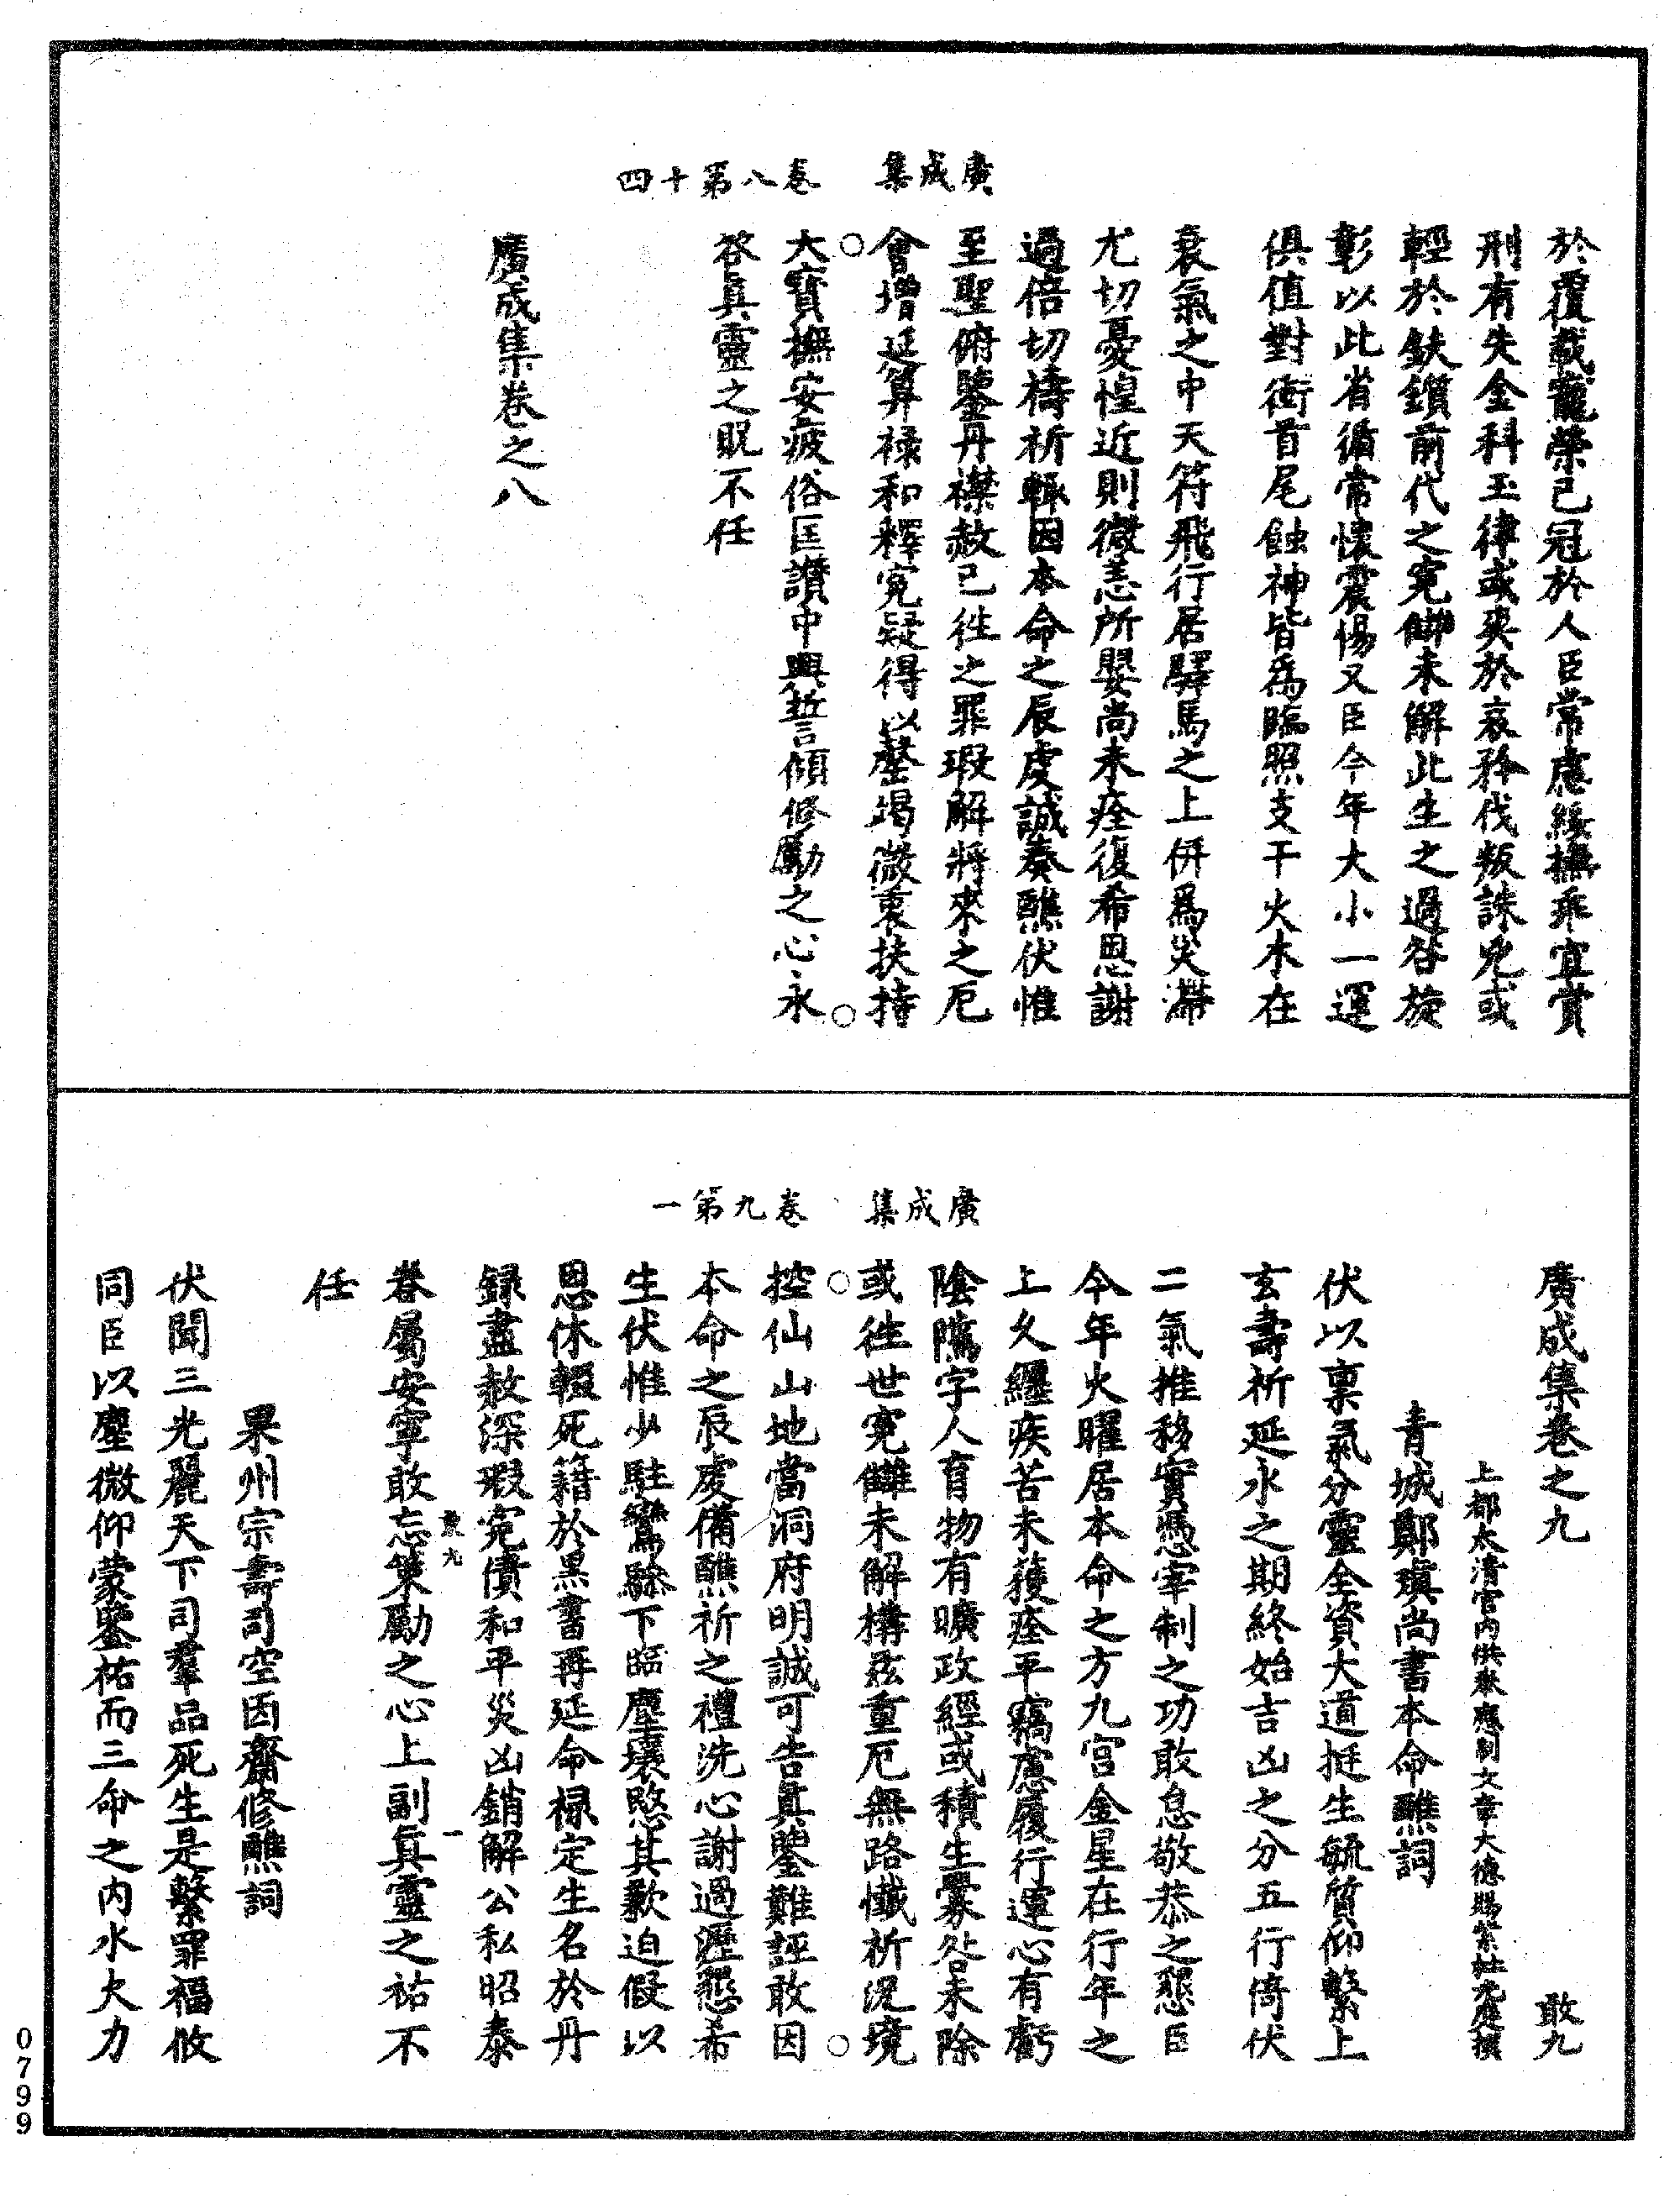 廣成集　卷八第十四
於覆載寵榮已冠於人臣常慮綏撫乖宜賞
刑有失金科玉律或爽於哀矜伐叛誅兇或
輕於鈇鑕前代之寃讎未解此生之過咎旋
彰以此省循常懷震惕又臣今年大小一運
俱值對衝首尾蝕神皆為臨照支干火木在
衰氣之中天符飛行居驛馬之上併為災滯
尤切憂惶近則微恙所嬰尚未痊復希恩謝
過倍切禱祈輒因本命之辰虔誠奏醮伏惟
至聖俯鑒丹襟赦已往之罪瑕解將來之厄
會增延算祿和釋寃疑得以罄竭微衷扶持
大寶撫安疲俗匡讚中興誓傾修勵之心永
答真靈之貺不任
廣成集卷之八
廣成集　卷九第一
廣成集卷之九　敢九
上都太清宮內供奉應制文章大德賜紫杜光庭撰
青城鄭瑱尚書本命醮詞
伏以稟氣分靈全資大道挺生毓質仰繫上
玄壽祈延永之期終始吉凶之分五行倚伏
二氣推移實憑宰制之功敢怠敬恭之懇臣
今年火曜居本命之方九宮金星在行年之
上久纏疾苦未獲痊平竊慮履行運心有虧
陰騭字人育物有曠政經或積生釁咎未除
或往世寃讎未解構茲重厄無路懺祈況境
控仙山地當洞府明誠可告真鑒難誣敢因
本命之辰虔備醮祈之禮洗心謝過瀝懇希
生伏惟少駐鸞驂下臨塵壤愍其歎迫假以
恩休輟死籍於黑書再延命祿定生名於丹
錄盡赦深瑕寃債和平災凶銷解公私昭泰
眷屬安寧敢忘策勵之心上副真靈之祐不
任
果州宗壽司空因齋修醮詞
伏聞三光麗天下司羣品死生是繫罪福攸
同臣以塵微仰蒙鑒祐而三命之內水火力
0799